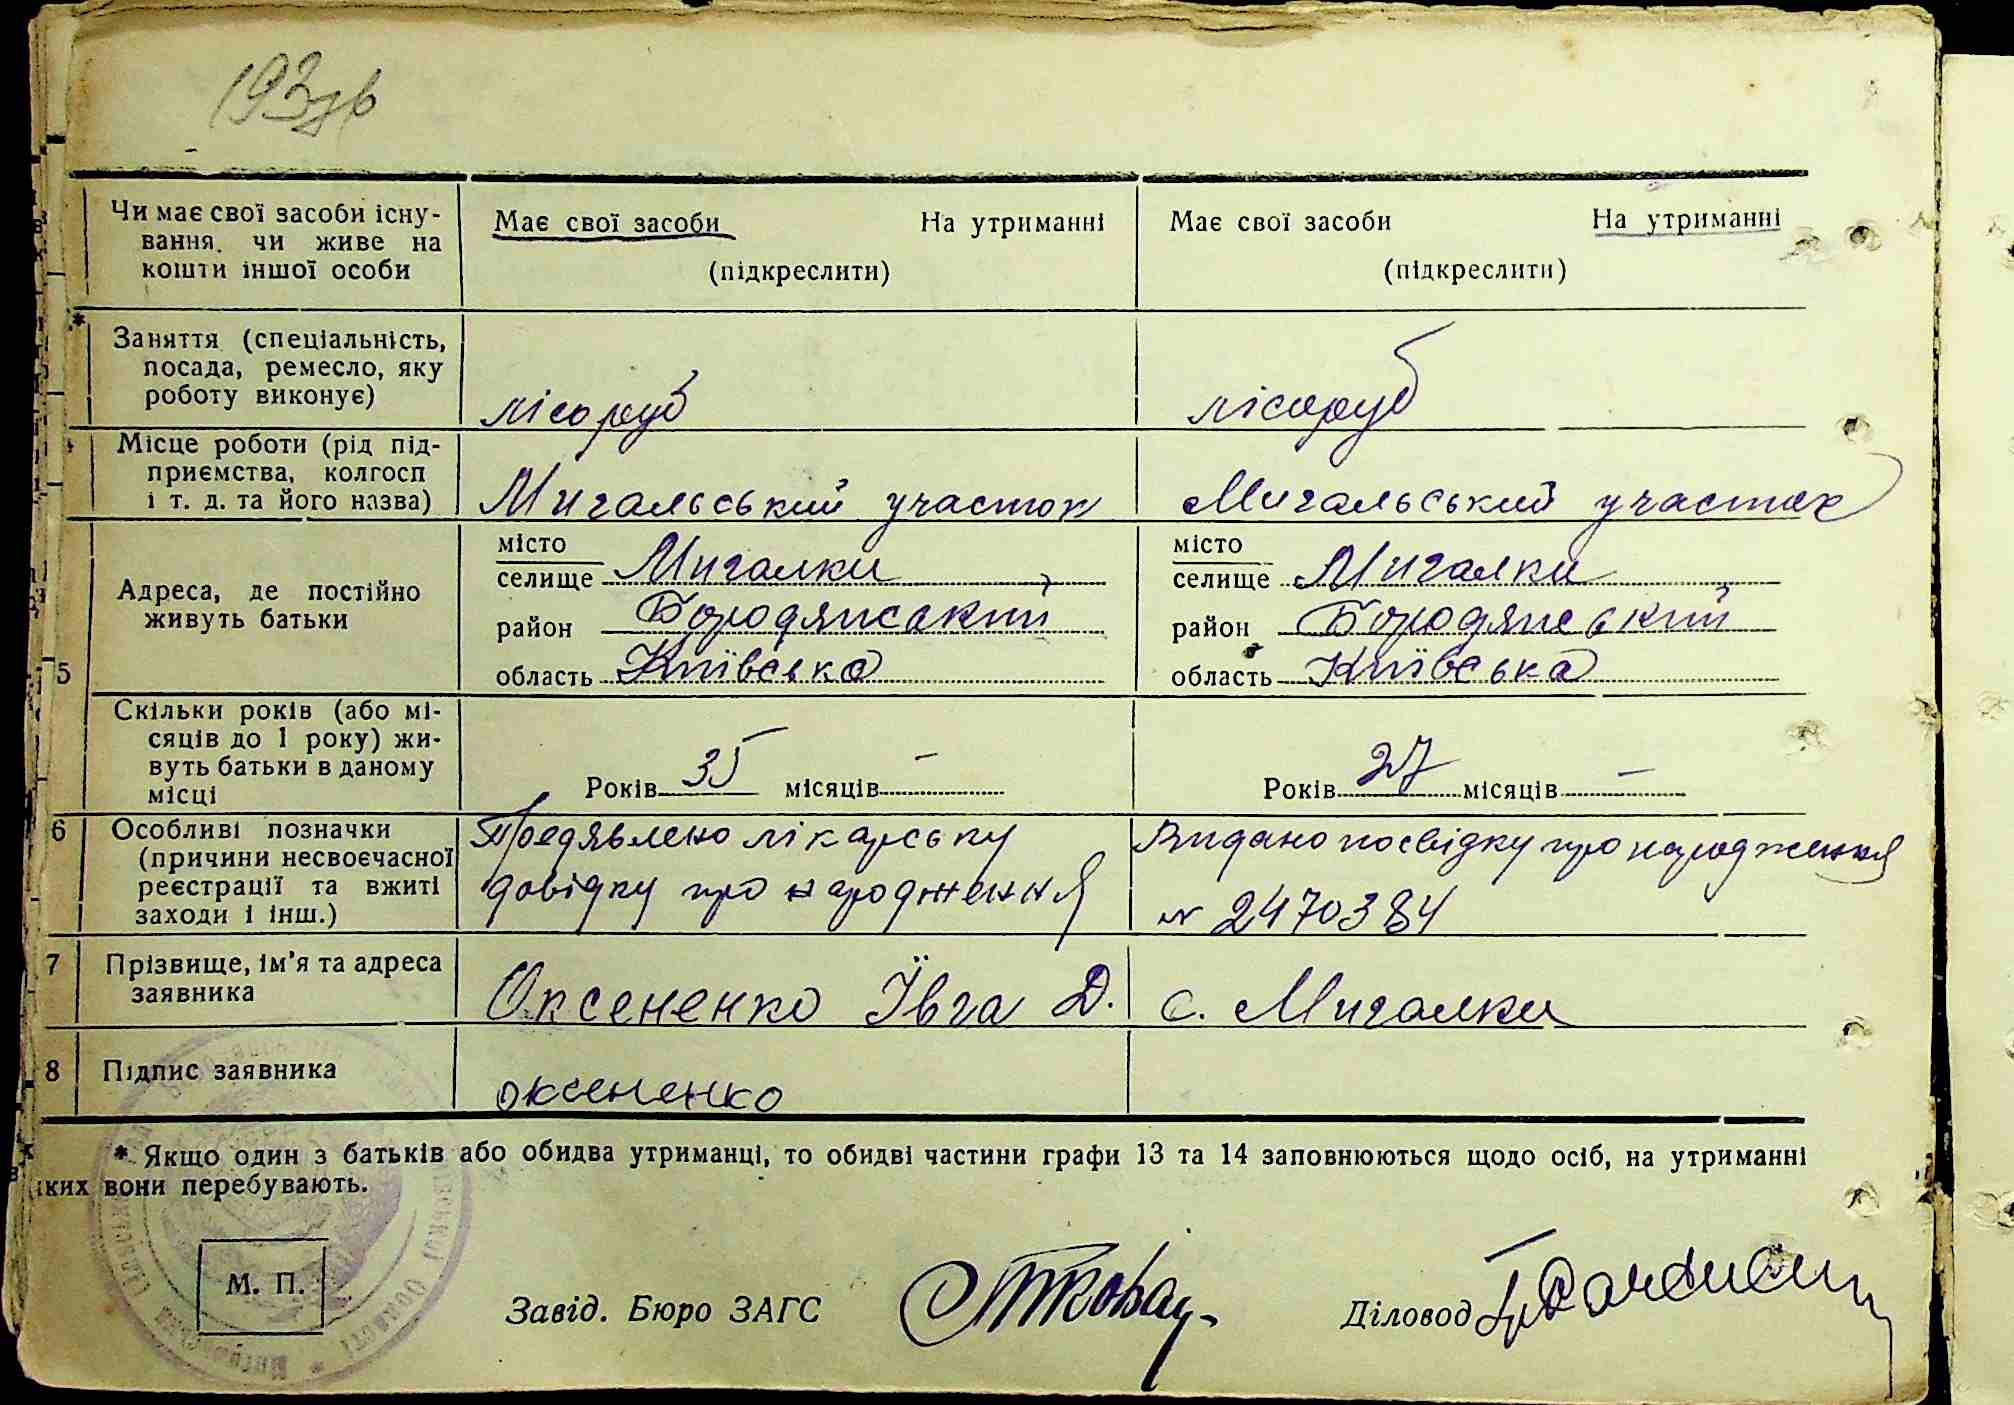 193зв
Чи має свої засоби існу-
вання, чи живе на
кошти іншої особи
Має свої засоби На утриманні
(підкреслити)
Має свої засоби На утриманні
(підкреслити)
* Заняття (спеціальність,
посада, ремесло, яку
роботу виконує)
лісоруб
лісоруб
Місце роботи (рід під-
приємства, колгосп
і т. д. та його назва)
Мигальський участок
Мигальський участок
5
Адреса, де постійно
живуть батьки
місто
селище Мигалки
район Бородянський
область Київська
місто
селище Мигалки
район Бородянський
область Київська
Скільки років (або мі-
сяців до 1 року) жи-
вуть батьки в даному
місці
Років 35 місяців —
Років 27 місяців —
6 Особливі позначки
(причини несвоєчасної
реєстрації та вжиті
заходи і інш.)
Предявлено лікарську
довідку про народження
Видано посвідку про народження
№ 2470384
7 Прізвище, ім'я та адреса
заявника
Оксененко Ївга Д.
с. Мигалки
8 Підпис заявника
оксененко
* Якщо один з батьків або обидва утриманці, то обидві частини графи 13 та 14 заповнюються щодо осіб, на утриманні
яких вони перебувають.
М. П.
Завід. Бюро ЗАГС
Діловод